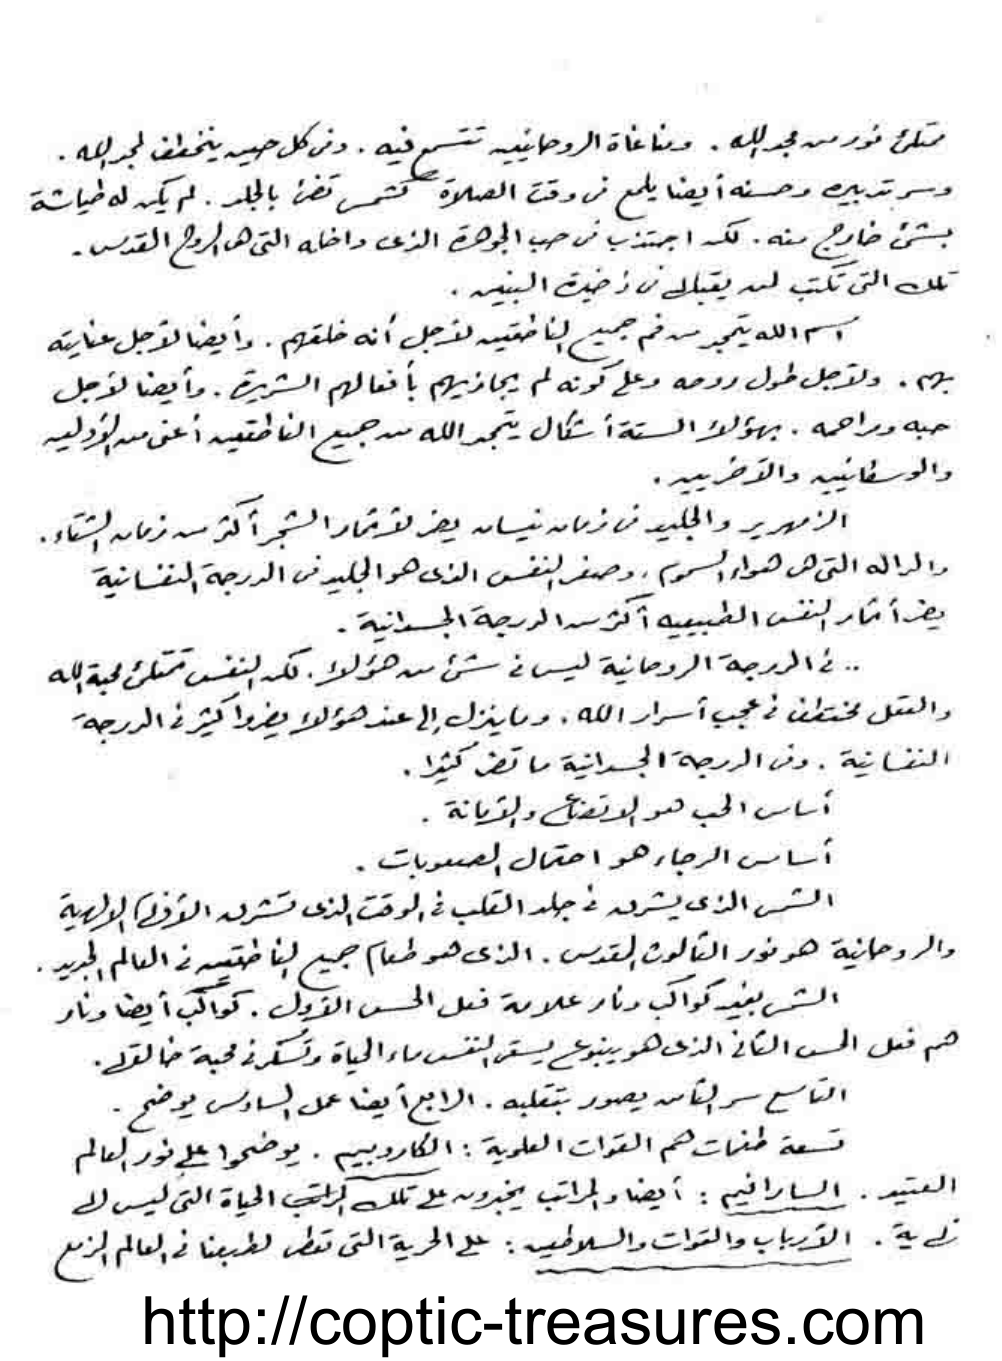 ممتلئ نور من مجد الله . ومناغاة الروحانيين تتسمع فيه . وفى كل حين ينخطف لمجد الله .
وسر تدبيره وحسنه أيضا يلمع فى وقت الصلاة كشمس تضئ بالجلد . لم يكن له طياشة
بشئ خارج منه . لكن اجتذب فى حب الجوهرة الذى داخله التى هى الروح القدس .
تلك التى تكتب لمن يقبل فى ذخيرة البنين .
اسم الله يتمجد من فم جميع الناطقين لأجل أنه خلقهم . وأيضا لأجل عنايته
بهم . ولأجل طول روحه وعلى كونه لم يجازيهم بأفعالهم الشريرة . وأيضا لأجل
حبه ومراحمه . بهؤلاء الستة أشكال يتمجد الله من جميع الناطقين أعنى من الأولين
والوسطانيين والآخريين .
الزمهرير والجليد فى زمان نيسان يضر لأثمار الشجر أكثر من زمان الشتاء .
والراله التى هى هواء السموم . وصغر النفس الذى هو الجليد فى الدرجة النفسانية
يضر أثمار النفس الطبيعيه أكثر من الدرجة الجسدانية .
.. فى الدرجة الروحانية ليس فى شئ من هؤلاء . لكن النفس تمتلئ محبة الله
والعقل مختطف فى عجب أسرار الله . وما ينزل إلى عند هؤلاء يضروا كثير فى الدرجة
النفسانية . وفى الدرجة الجسدانية ما تضر كثيرا .
أساس الحب هو الاتضاع والأمانة .
أساس الرجاء هو احتمال الصعوبات .
الشمس الذى يشرق فى جلد القلب فى الوقت الذى تشرق الأفكار الالهية
والروحانية هو نور الثالوث القدس . الذى هو طعام جميع الناطقين فى العالم الجديد .
الشمس بغير كواكب ونار علامة فعل الحس الأول . كواكب أيضا ونار
هم فعل الحس الثانى الذى هو ينبوع يسقى النفس ماء الحياة وتسكر فى محبة خالقها .
التاسع سر الثامن يصور بتقلبه . الرابع أيضا عمل السادس يوضح .
تسعة طغمات هم القوات العلوية : الكاروبيم . يوضحوا على نور العالم
العتيد . السارافيم : أيضا والمراتب يخبرون على تلك الحياة التى ليس لها
نهاية . الأرباب والقوات والسلاطين : على الحرية التى تعطى لطبعنا فى العالم المزمع
http://coptic-treasures.com